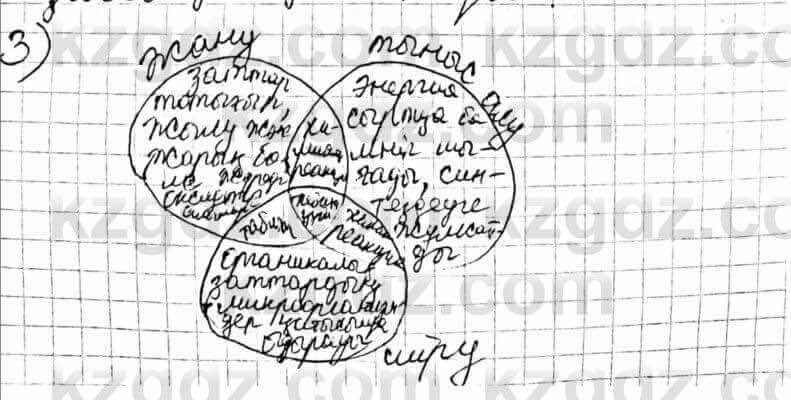 3)
жану
тыныс алу
заттар
тотығып,
жылу және
жарық бө
хи-
мия
реакция
Энергия
сыртқа бө
лініп шы-
ғады, син-
тездеуге
жұмсал-
ды
табиғи
химия
реакция
Органикалық
заттардың
микроорганизм
дер қатысында
ыдырауы
шіру
kzgdz.com